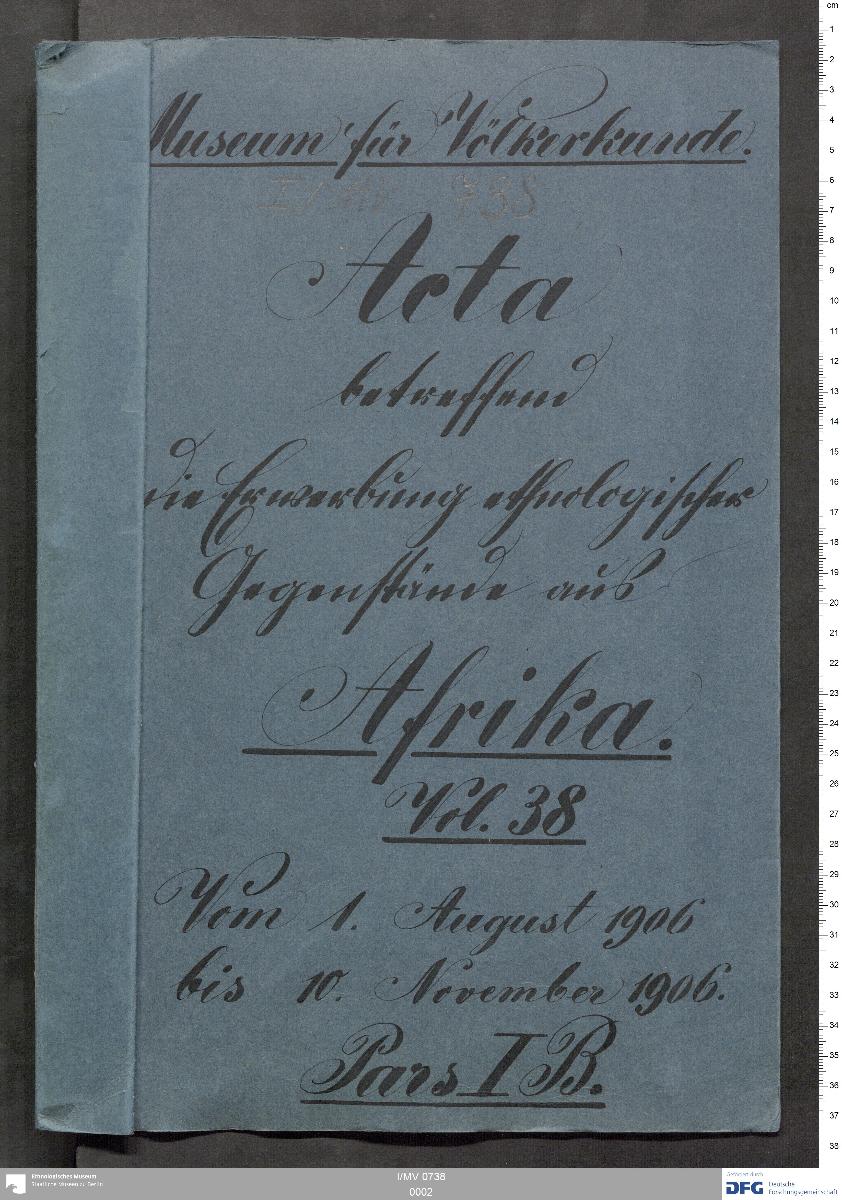 Museum für Völkerkunde.
I/MV 738
Acta
betreffend
die Erwerbung ethnologischer
Gegenstände aus
Afrika.
Vol. 38
Vom 1. August 1906
bis 10. November 1906.
Pars I B.
cm
1
2
3
4
5
6
7
8
9
10
11
12
13
14
15
16
17
18
19
20
21
22
23
24
25
26
27
28
29
30
31
32
33
34
35
36
37
38
Ethnologisches Museum
Staatliche Museen zu Berlin
I/MV 0738
0002
Gefördert durch
DFG Deutsche
Forschungsgemeinschaft